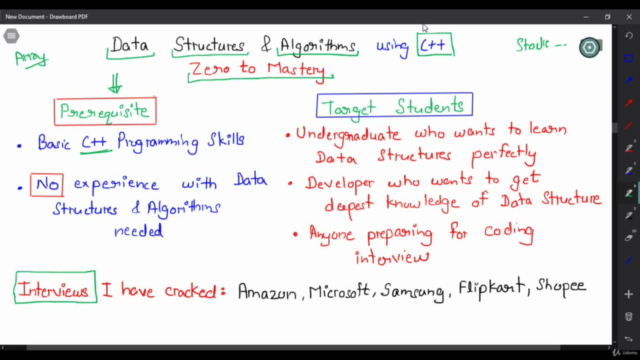 New Document - Drawboard PDF
Array
Data Structures & Algorithms using C++
Stacks --
Zero to Mastery
Prerequisite
• Basic C++ Programming Skills
• No experience with Data
Structures & Algorithms
needed
Target Students
• Undergraduate who wants to learn
Data Structures perfectly
• Developer who wants to get
deepest knowledge of Data Structure
• Anyone preparing for coding
interview
Interviews I have cracked: Amazon, Microsoft, Samsung, Flipkart, Shopee